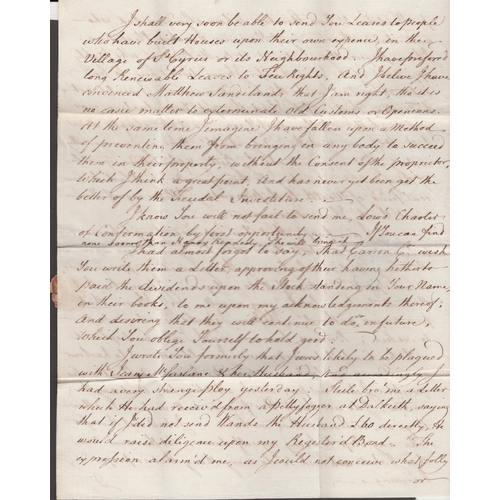 I shall very soon be able to send You Leases to people
who have built Houses upon their own expence, in the
Village of St Cyrus or its Neighbourhood. I have preferd
long Renewable Leases to Feu Rights, And I belive I have
convinced Matthew Sandelands that I am right, tho' it is
no easie matter to exterminate old Customs or Openions.
At the same time I imagine I have fallen upon a Method
of preventing them from bringing in any body to succeed
them in their property, without the Consent of the proprietor,
which I think a great point, And has never yet been got the
better of by the Feudal Investiture
I know You will not fail to send me, Low's Charter
of Confirmation by first opportunity If You can find
none sooner than Henry Kennedy, he will bring it
I had almost forgot to say, that Carron Co. wish
You write them a Letter, approving of their having hetherto
paid the dividends upon the Stock standing in Your Name
in their books, to me upon my acknowledgments thereof;
And desiring that they will continue to do so, in future,
which You oblige Yourself to hold good.
I wrote You formerly that I was likely to be plagued
with Jean McFarlane & her Husband, And accordingly I
had a very strange ploy yesterday. Steele bro' me a Letter
which He had received from a Pettyfogger at Dalkeith, saying
that if I did not send Wands the Husband £60 directly, He
would raise diligence upon my Registerd Bond. The
expression alarm'd me, as I could not conceive what folly
or